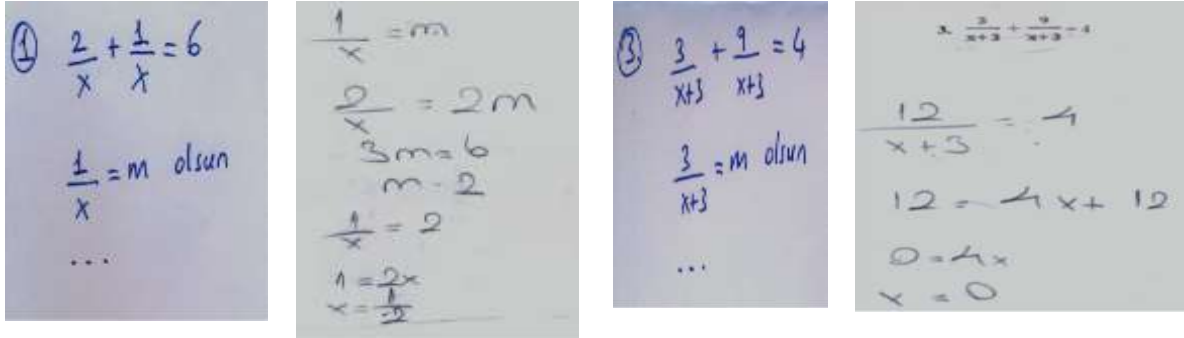 ① 2/x + 1/x = 6
1/x = m olsun
...
1/x = m
2/x = 2m
3m = 6
m = 2
1/x = 2
1 = 2x
x = 1/2
③ 3/x+3 + 9/x+3 = 4
3/x+3 = m olsun
...
3. 3/x+3 + 9/x+3 = 4
12/x+3 = 4
12 = 4x + 12
0 = 4x
x = 0